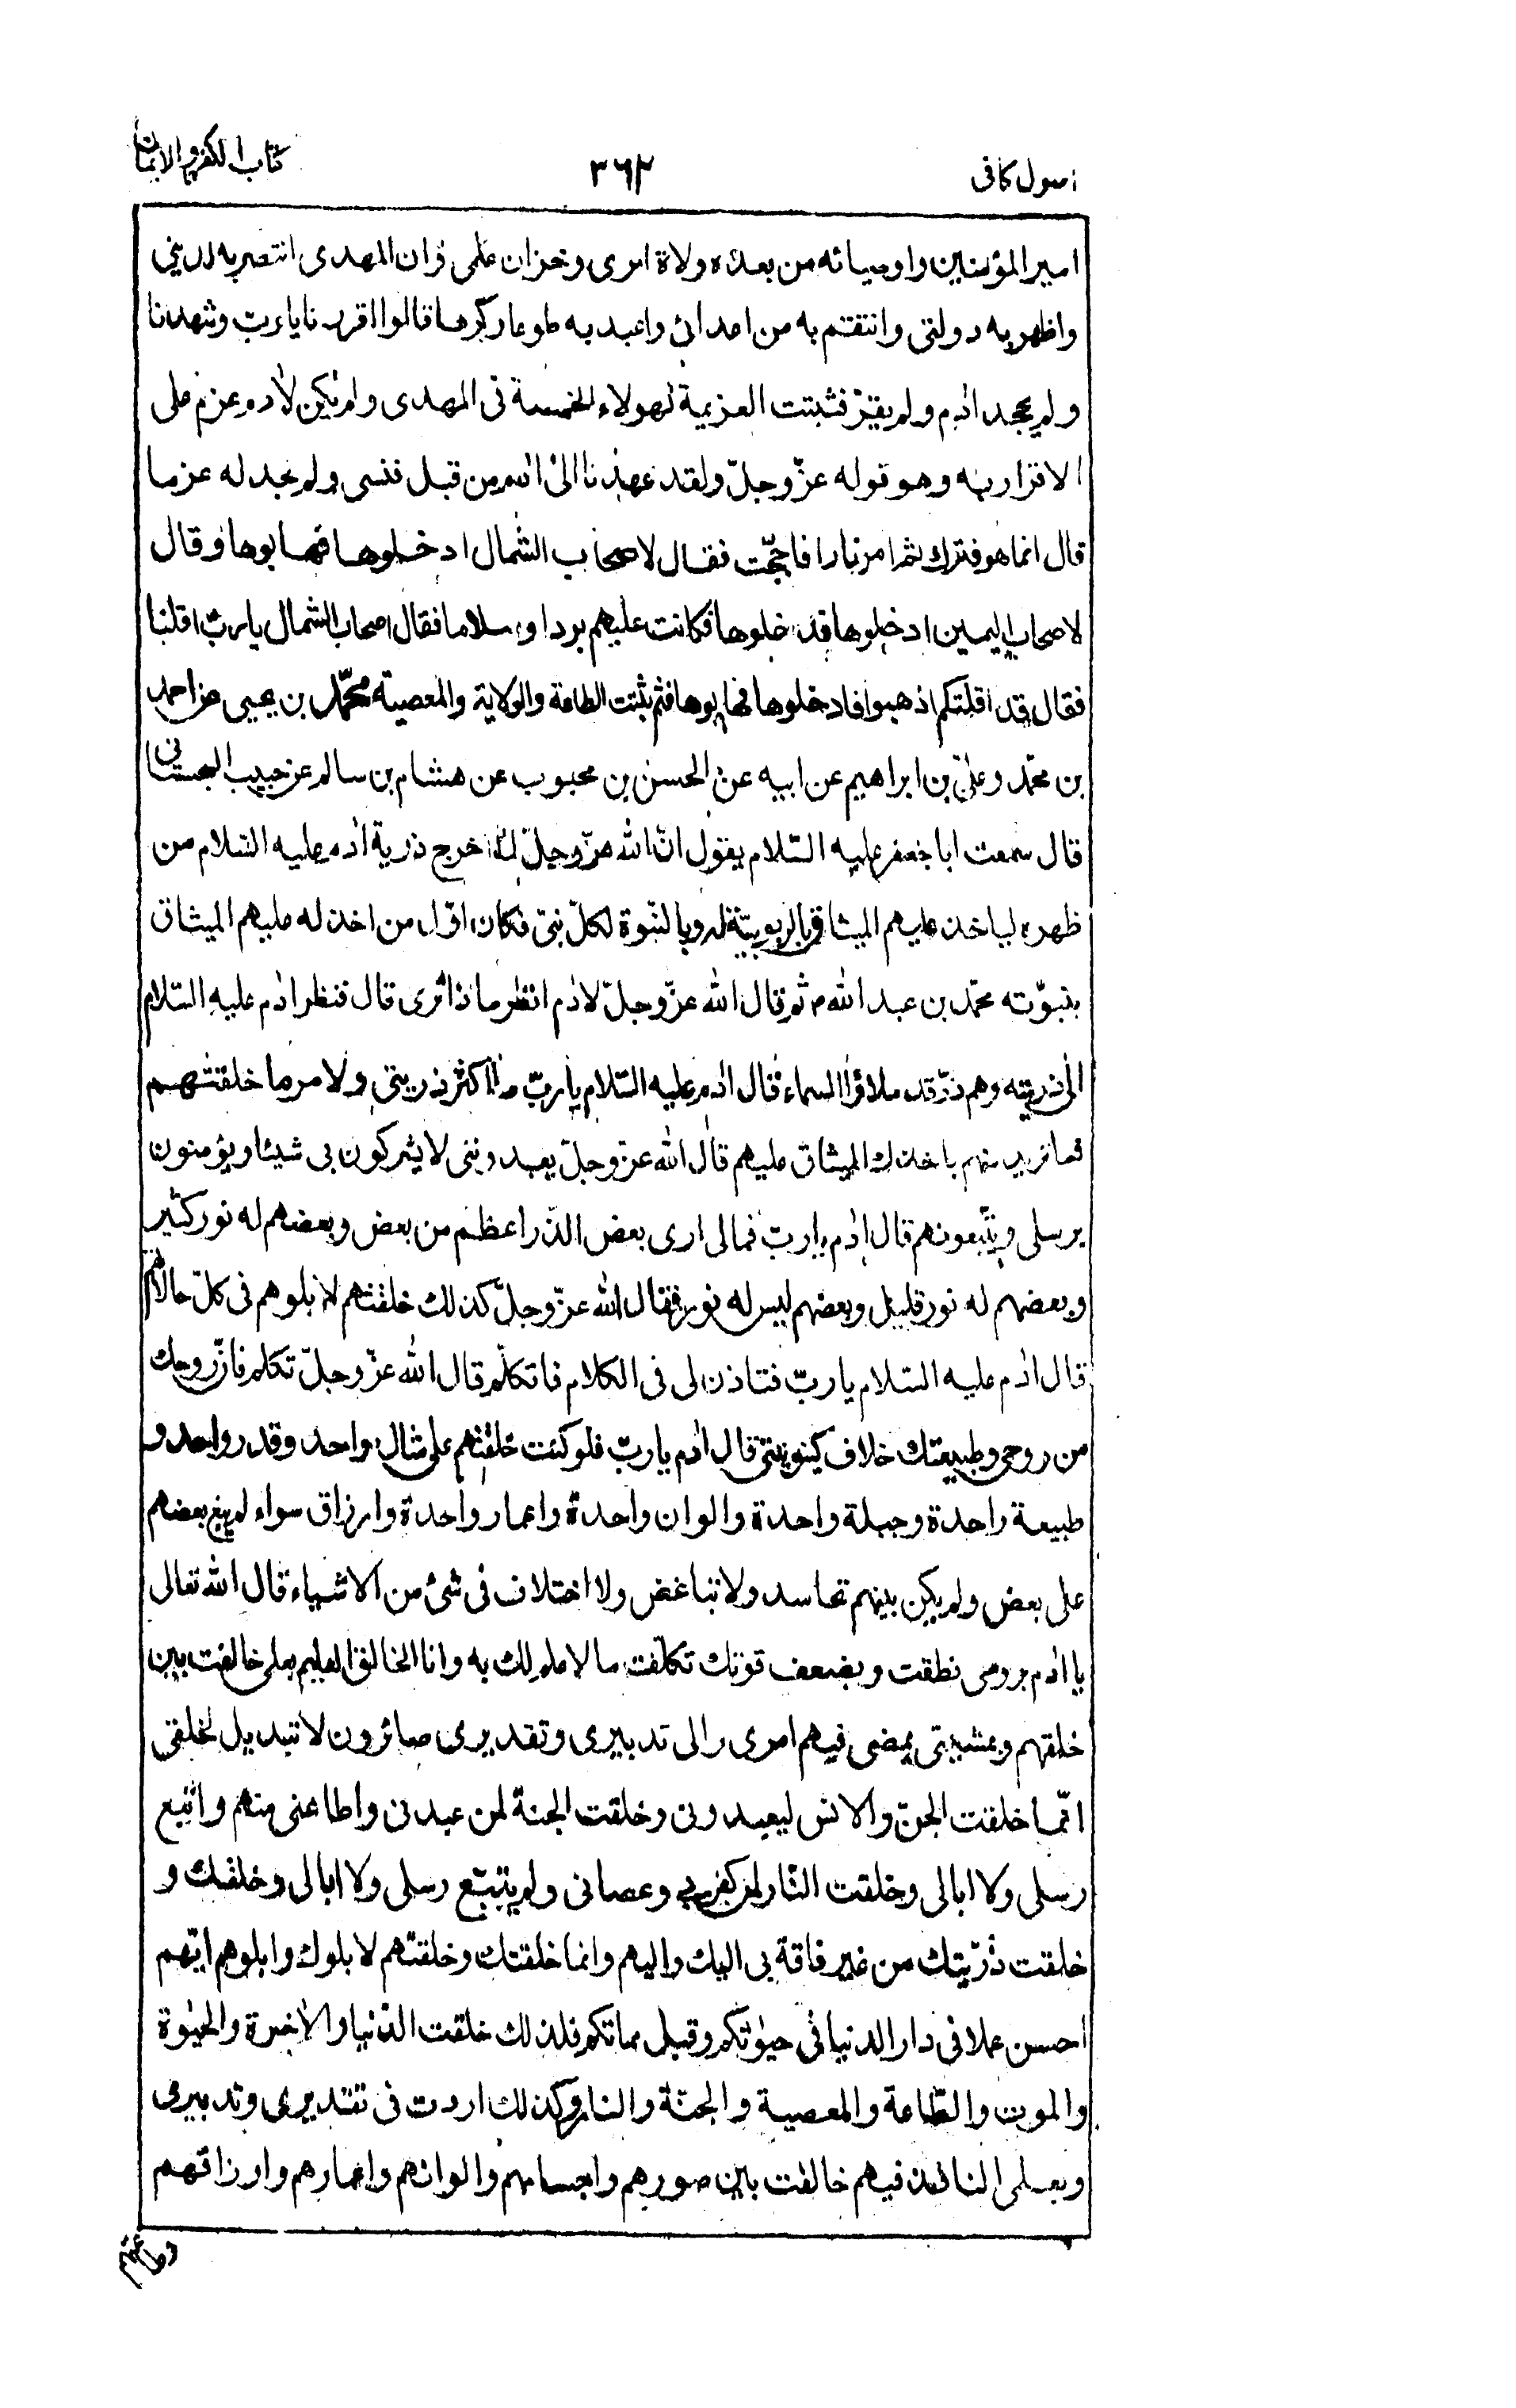 اصول كافى
٣٦٢
كتاب الكفر والايمان
امير المؤمنين واوصيائه من بعده ولاة امرى وخزان علمى وان المهدى انتصر به لدينى
واظهر به دولتى وانتقم به من اعدائى واعبد به طوعا وكرها قالوا اقررنا يا رب وشهدنا
ولم يجحد ادم ولم يقرّ فثبتت العزيمة لهولاء الخمسة فى المهدى ولم يكن لادم عزم على
الاقرار به وهو قوله عزّ وجلّ ولقد عهدنا الى ادم من قبل فنسى ولم نجد له عزما
قال انما هو فترك ثم امر نارا فاججت فقال لاصحاب الشمال ادخلوها فهابوها وقال
لاصحاب اليمين ادخلوها فدخلوها فكانت عليهم بردا وسلاما فقال اصحاب الشمال يا ربّ اقلنا
فقال قد اقلتكم اذهبوا فادخلوها فهابوها فثم ثبتت الطاعة والولاية والمعصية محمّد بن يحيى عن احمد
بن محمّد وعلىّ بن ابراهيم عن ابيه عن الحسن بن محبوب عن هشام بن سالم عن حبيب السجستانى
قال سمعت ابا جعفر عليه السّلام يقول انّ الله عزّ وجلّ لمّا اخرج ذرية ادم عليه السّلام من
ظهره لياخذ عليهم الميثاق بالربوبيّة له وبالنبّوة لكلّ نبىّ فكان اوّل من اخذ له عليهم الميثاق
بنبوّته محمّد بن عبد الله م ثم قال الله عزّ وجلّ لادم انظر ماذا ترى قال فنظر ادم عليه السّلام
الى ذريته وهم ذرّ قد ملاؤا السماء قال ادم عليه السّلام يا ربّ ما اكثر ذريتى ولامر ما خلقتهم
فما تريد منهم باخذك الميثاق عليهم قال الله عزّ وجلّ يعبدوننى لا يشركون بى شيئا ويؤمنون
برسلى ويتّبعونهم قال ادم يا ربّ فمالى ارى بعض الذّر اعظم من بعض وبعضهم له نور كثير
وبعضهم له نور قليل وبعضهم ليس له نور فقال الله عزّ وجلّ كذلك خلقتهم لابلوهم فى كلّ حالاتهم
قال ادم عليه السّلام يا ربّ فتاذن لى فى الكلام فاتكلّم قال الله عزّ وجلّ تكلم فانّ روحك
من روحى وطبيعتك خلاف كينونتى قال ادم يا ربّ فلو كنت خلقتهم على مثال واحد وقدر واحد و
طبيعة واحدة وجبلة واحدة والوان واحدة واعمار واحدة وارزاق سواء لم يبغ بعضهم
على بعض ولم يكن بينهم تحاسد ولا تباغض ولا اختلاف فى شئ من الاشياء قال الله تعالى
يا ادم بروحى نطقت وبضعف قوّتك تكلّفت ما لا علم لك به وانا الخالق العليم بعلمى خالفت بين
خلقهم وبمشيّتى يمضى فيهم امرى والى تدبيرى وتقديرى صائرون لا تبديل لخلقى
انّما خلقت الجنّ والانس ليعبدونى وخلقت الجنة لمن عبدنى واطاعنى منهم واتّبع
رسلى ولا ابالى وخلقت النّار لمن كفر بى وعصانى ولم يتّبع رسلى ولا ابالى وخلقتك و
خلقت ذرّيتك من غير فاقة بى اليك واليهم وانما خلقتك وخلقتهم لابلوك وابلوهم ايّهم
احسن عملا فى دار الدنيا فى حيوتكم وقبل مماتكم فلذلك خلقت الدّنيا والاخرة والحيوة
والموت والطّاعة والمعصية والجنّة والنار وكذلك اردت فى تقديرى وتدبيرى
وبعلمى النافذ فيهم خالفت بين صورهم واجسامهم والوانهم واعمارهم وارزاقهم
وطاعتهم